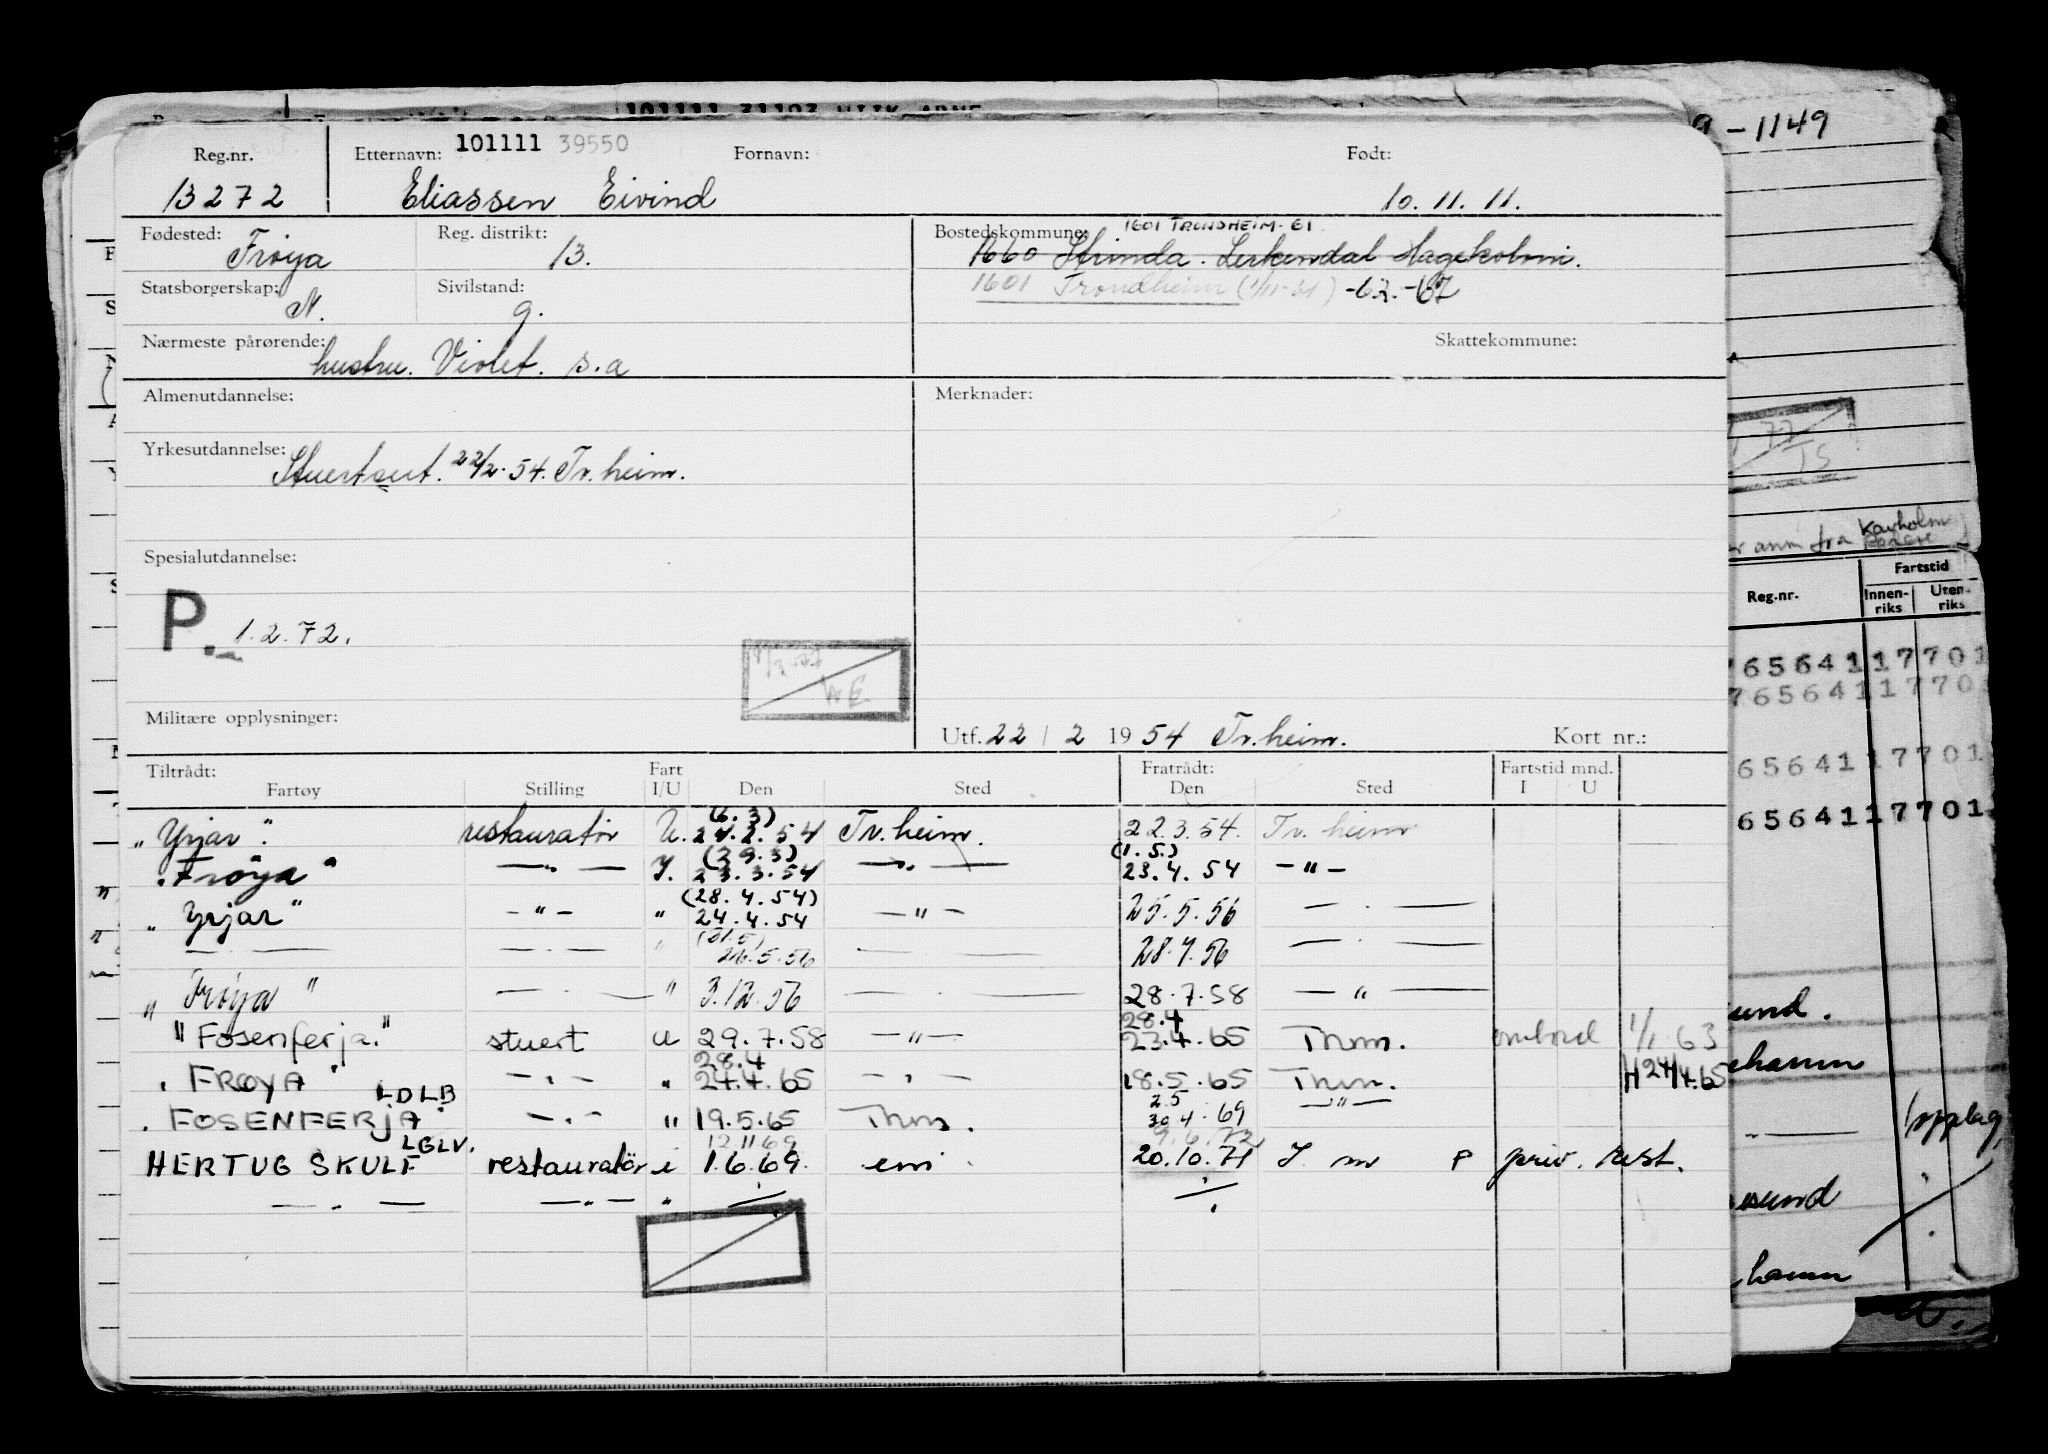 9-1149
Reg.nr. Etternavn: 101111 39550 Fornavn: Født:
13272 Eliassen Eivind 10.11.11.
Fødested: Frøya Reg. distrikt: 13. Bostedskommune: 1601 TRONDHEIM-61
1660 Strinda. Lerkendal Hagekoloni.
Statsborgerskap: N. Sivilstand: g. 1601 Trondheim (1/11-61) -62.-67
Nærmeste pårørende: hustru. Violet. s.a Skattekommune:
Almenutdannelse: Merknader:
Yrkesutdannelse: Stuertsert. 22/2-54. Tr.heim.
Spesialutdannelse:
P. 1.2.72.
Militære opplysninger: Utf. 22/2 1954 Tr.heim. Kort nr.:
Tiltrådt: Fart Fratrådt: Fartstid mnd.
Fartøy Stilling I/U Den Sted Den Sted I U
(6.3)
"Yrjar". restauratør U. 24.2.54 Tr.heim. 22.3.54. Tr.heim
(29.3) (1.5.)
"Frøya" —"— I. 23.3.54 —"— 23.4.54 —"—
(28.4.54)
"Yrjar" —"— " 24.4.54 —"— 25.5.56 —"—
(31.5)
—"— —"— " 26.5.56 —"— 28.7.56 —"—
"Frøya" —"— " 3.12.56 —"— 28.7.58 —"—
28.4
"Fosenferja." stuert u 29.7.58 —"— 23.4.65 Thm. ombord 1/1 63
28.4
"FRØYA" —"— " 24.4.65 —"— 18.5.65 Thm. H 24/4.65
LDLB 2.5
"FOSENFERJA —"— " 19.5.65 Thm. 30.4.69 —"—
LGLV. 12.11 69
HERTUG SKULE restauratør i 1.6.69. emi 20.10.71 I m P priv. rest.
—"— —"— "
77
TS
ann fra Kavholm
Reg.nr. Fartstid
Innen-riks Uten-riks
6564117701
7656411770
6564117701
6564117701
und.
ehamn
opplag
esund
hamn